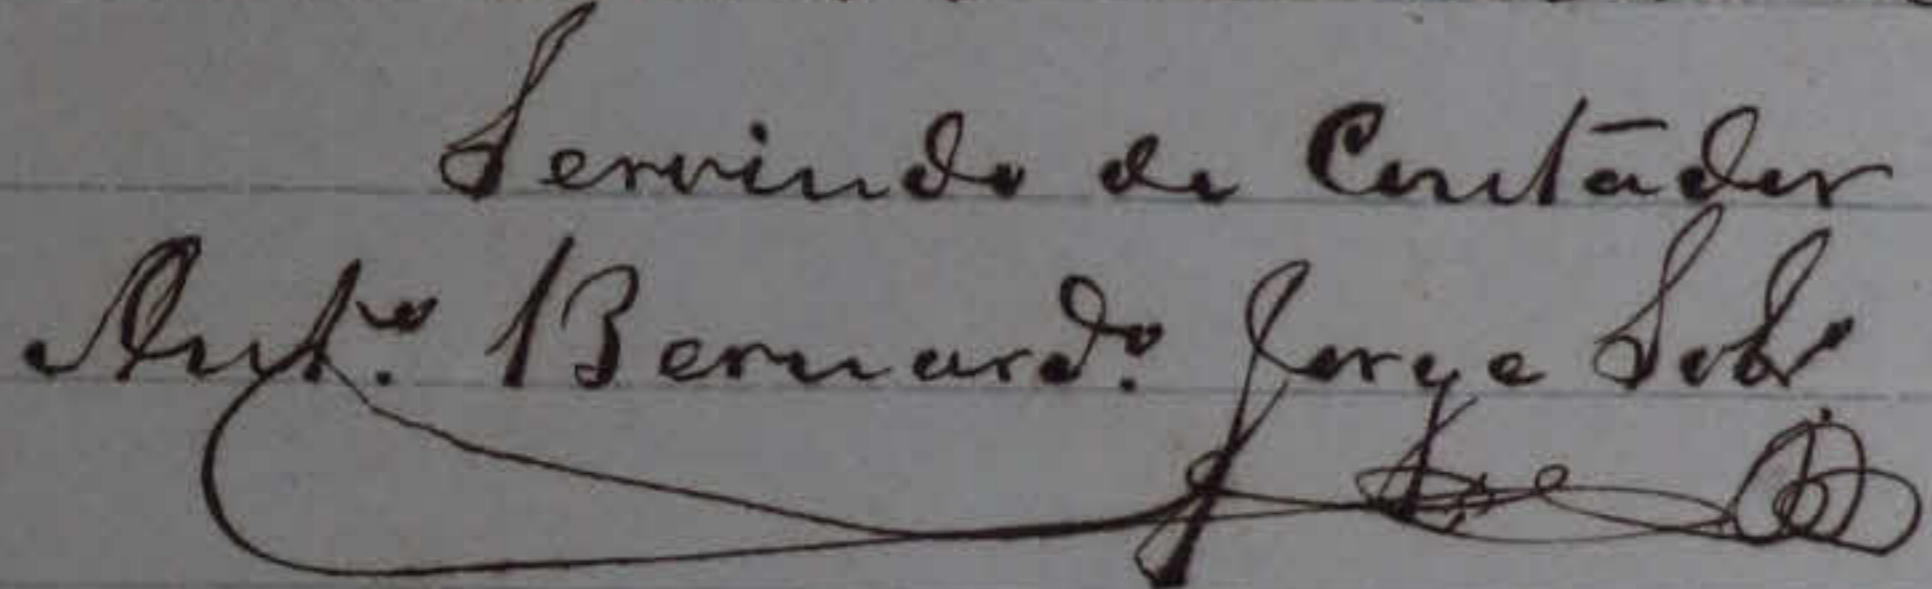 Servindo de Contador
Ant.º Bernard.º Jorge Sobr.º